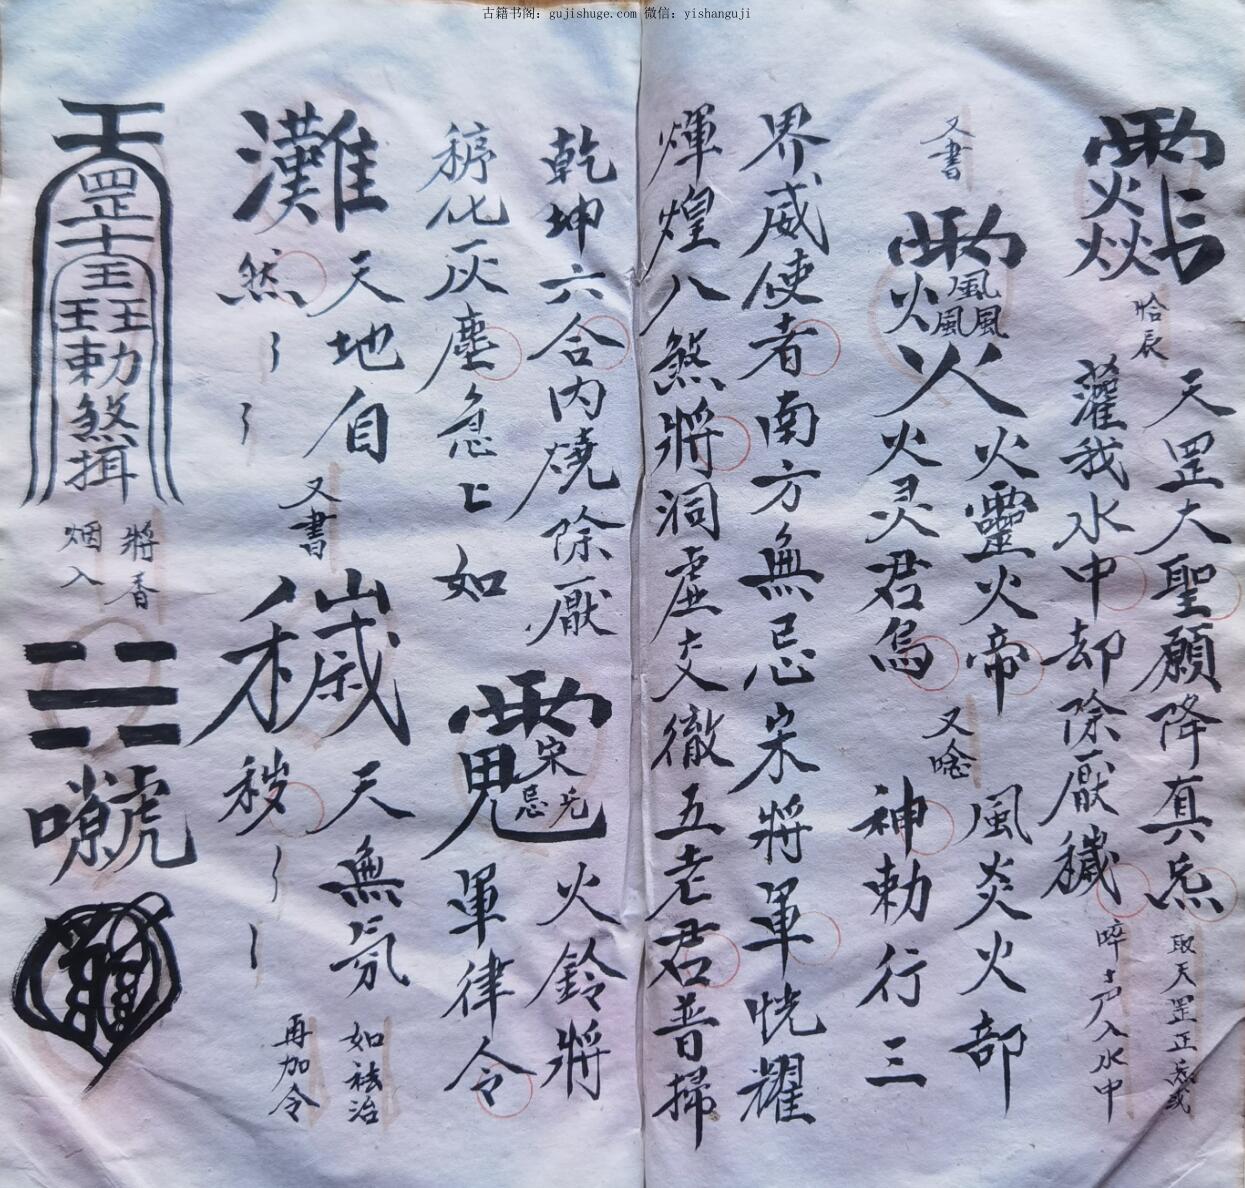 古籍书阁：gujishuge.com 微信：yishanguji
天罡大聖願降真炁
取天罡正炁或
灌我水中却除厭穢
啐
入水中
又書
火靈火帝
火灵君
又唸
風炎火部
神勅行三
界威使者南方無忌宋將軍恍耀
煇煌八煞將洞虛交徹五老君普掃
乾坤六合内燒除厭
化灰塵急
如
火鈴將
軍律令
灘
天地自
然
又書
穢
天無氛
穢
如法治
再加令
天罡
勅煞
將香
烟入